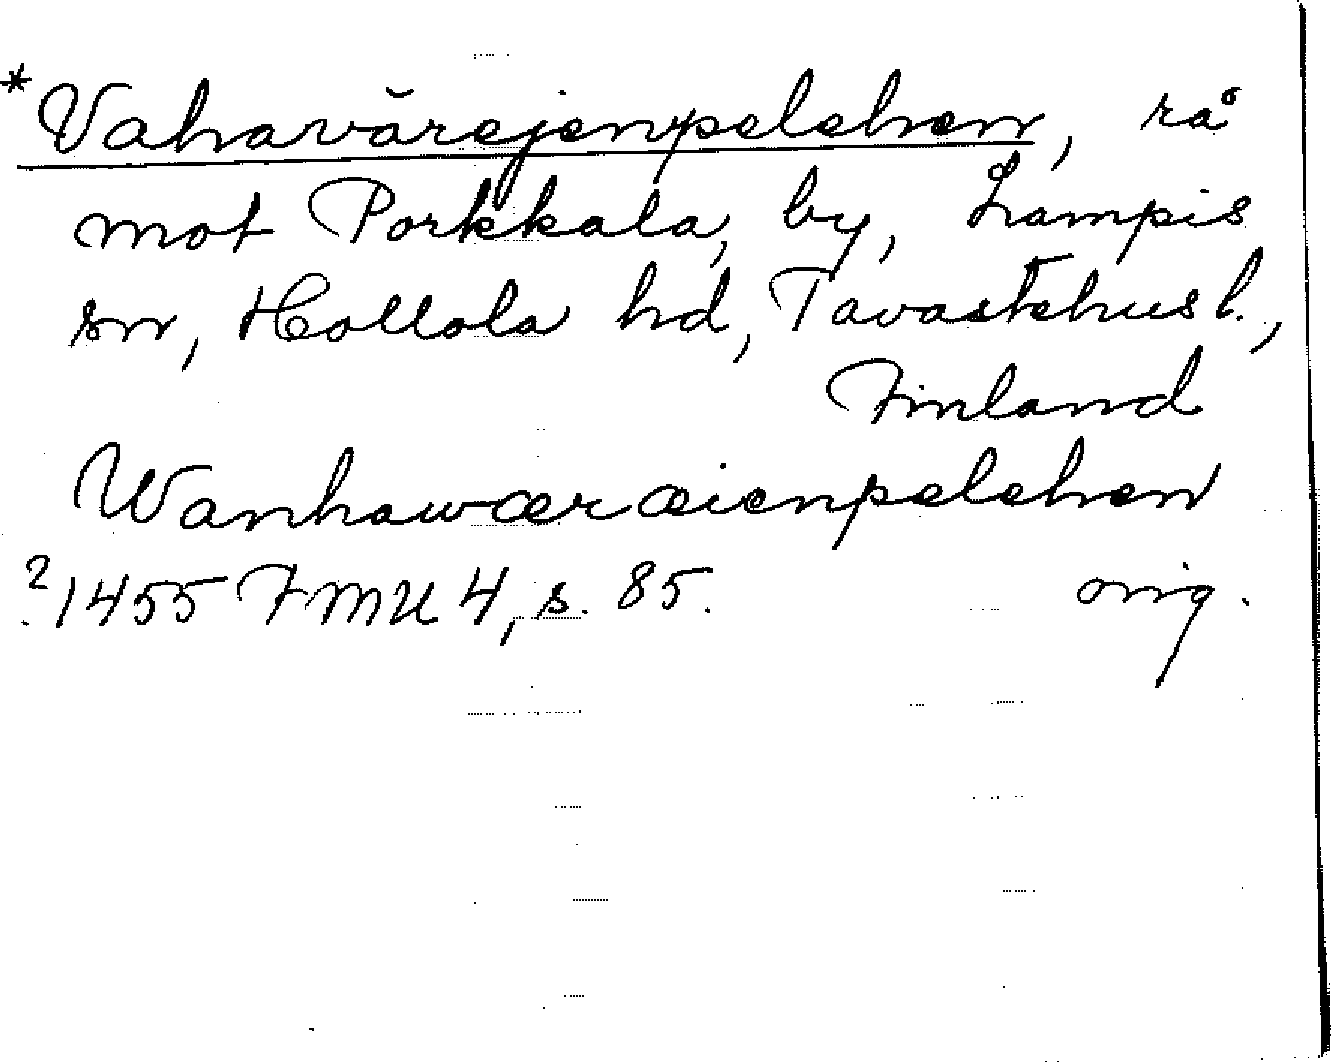 *Vahavärejenpelehen, rå
mot Porkkala, by, Lampis
sn, Hollola hd, Tavastehus l.,
Finland
Wanhawæræienpelehen
?1455 FMU 4, s. 85. orig.